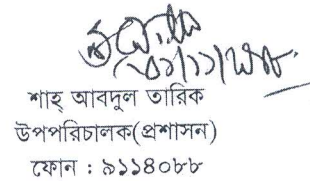 শাহ্ আবদুল তারিক
উপপরিচালক(প্রশাসন)
ফোন : ৯১১৪০৮৮